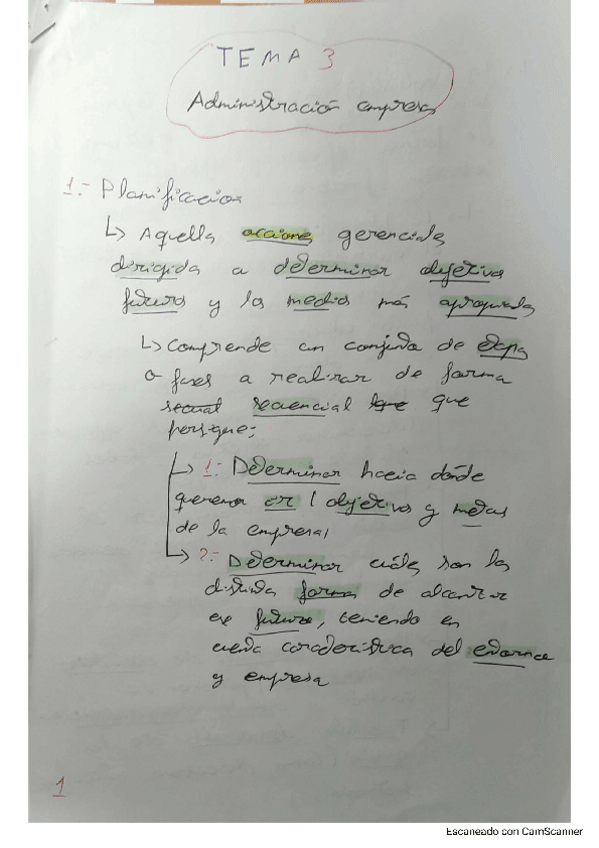 TEMA 3
Administración empresas
1.- Planificacion
↳ Aquellas acciones gerenciales
dirigida a determinar objetivos
futuros y los medios más apropiados
↳ Comprende un conjunto de etapas
o fases a realizar de forma
secual secuencial que que
persigue:
↳ 1: Determinar hacia dónde
queremos ir (objetivos y metas
de la empresa)
↳ 2: Determinar cuáles son las
distintas formas de alcanzar
ese futuro, teniendo en
cuenta características del entorno
y empresa
1
Escaneado con CamScanner